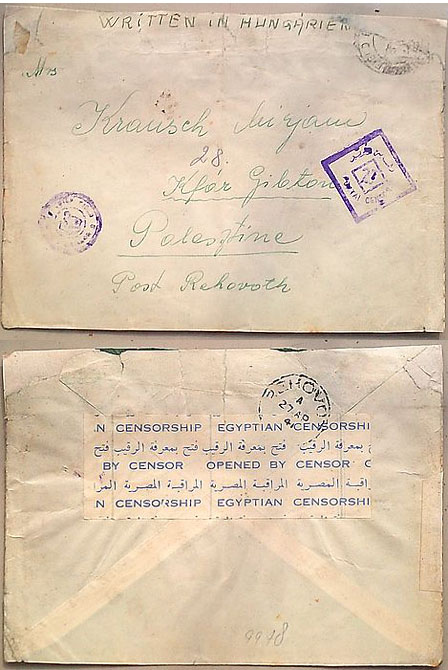 WRITTEN IN HUNGÁRIEN
Mrs
Krausch Mirjam
28.
Kfár Gibton
Palesztine
Post Rehovoth
REHOVOT
A
27 AP
4
N CENSORSHIP EGYPTIAN CENSORSHI
فتح بمعرفة الرقيب فتح بمعرفة الرقيب فتح بمعرفة
BY CENSOR OPENED BY CENSOR
المراقبة المصرية المراقبة المصرية المراقبة المصرية
N CENSORSHIP EGYPTIAN CENSORSHI